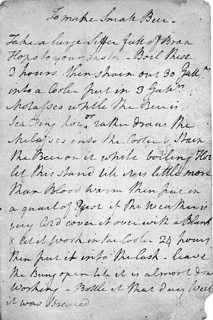 To make Small Beer
Take a large Siffer full of Bran
Hops to your Taste - Boil these
3 hours. then strain out 30 Gall.n
into a Cooler put in 3 Gall.n
Molasses while the Beer is
Scalding hot or rather draw the
Molasses into the Cooler & Strain
the Beer on it while boiling Hot
let this Stand till it is little more
than Blood warm then put in
a quart of Yest if the Weather is
very Cold cover it over with a Blank
& let it work in the Cooler 24 hours
then put it into the Cask - leave
the Bung open till it is almost done
working - Bottle it that day Week
it was Brewed